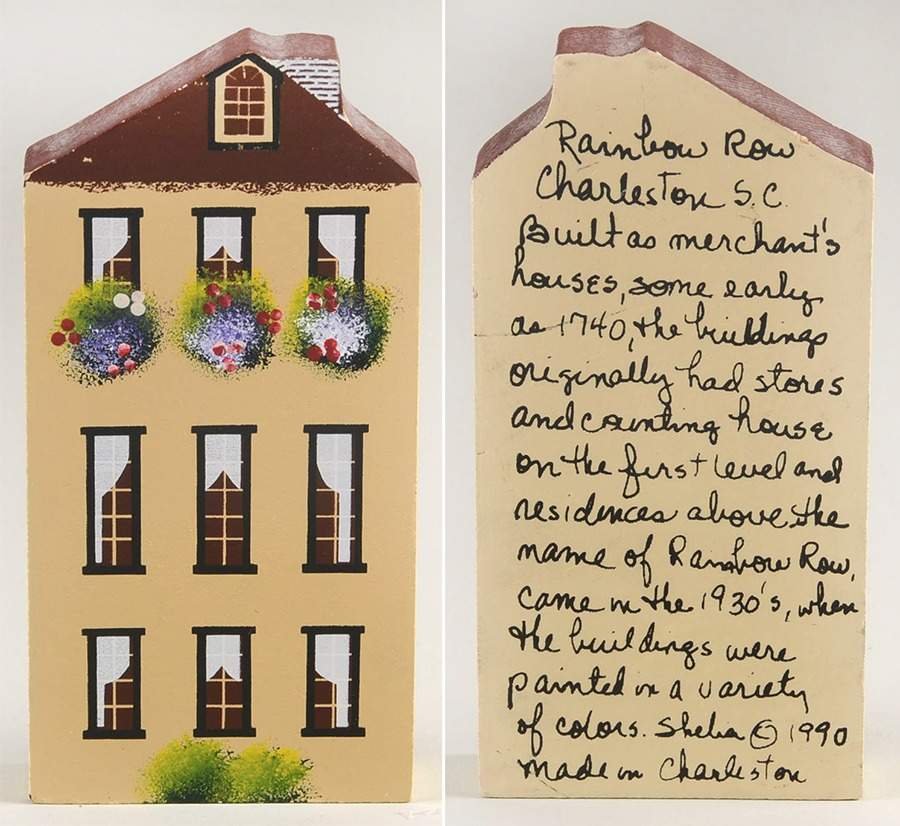 Rainbow Row
Charleston S.C.
Built as merchant's
houses, some early
as 1740, the buildings
originally had stores
and counting house
on the first level and
residences above. the
name of Rainbow Row,
came in the 1930's, when
the buildings were
painted in a variety
of colors. Shelia © 1990
made in Charleston